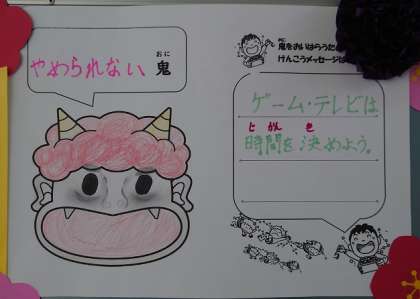 やめられない 鬼
おに
鬼をおいはらうため
けんこうメッセージは
ゲーム・テレビは
じかん き
時間を決めよう。